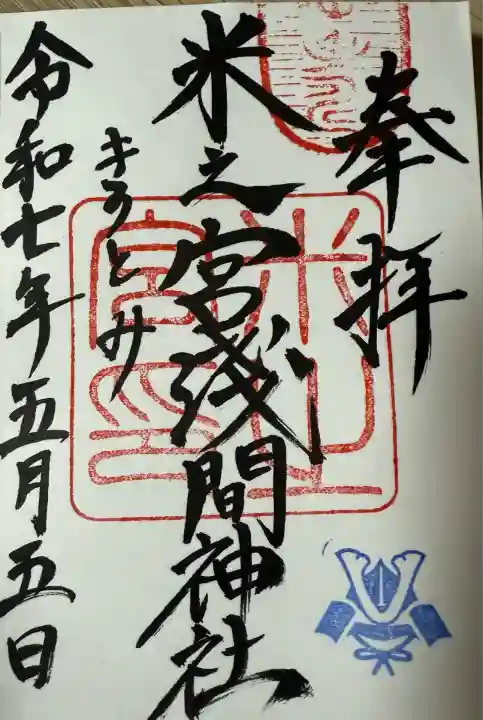 奉拝
米之宮浅間神社
令和七年五月五日